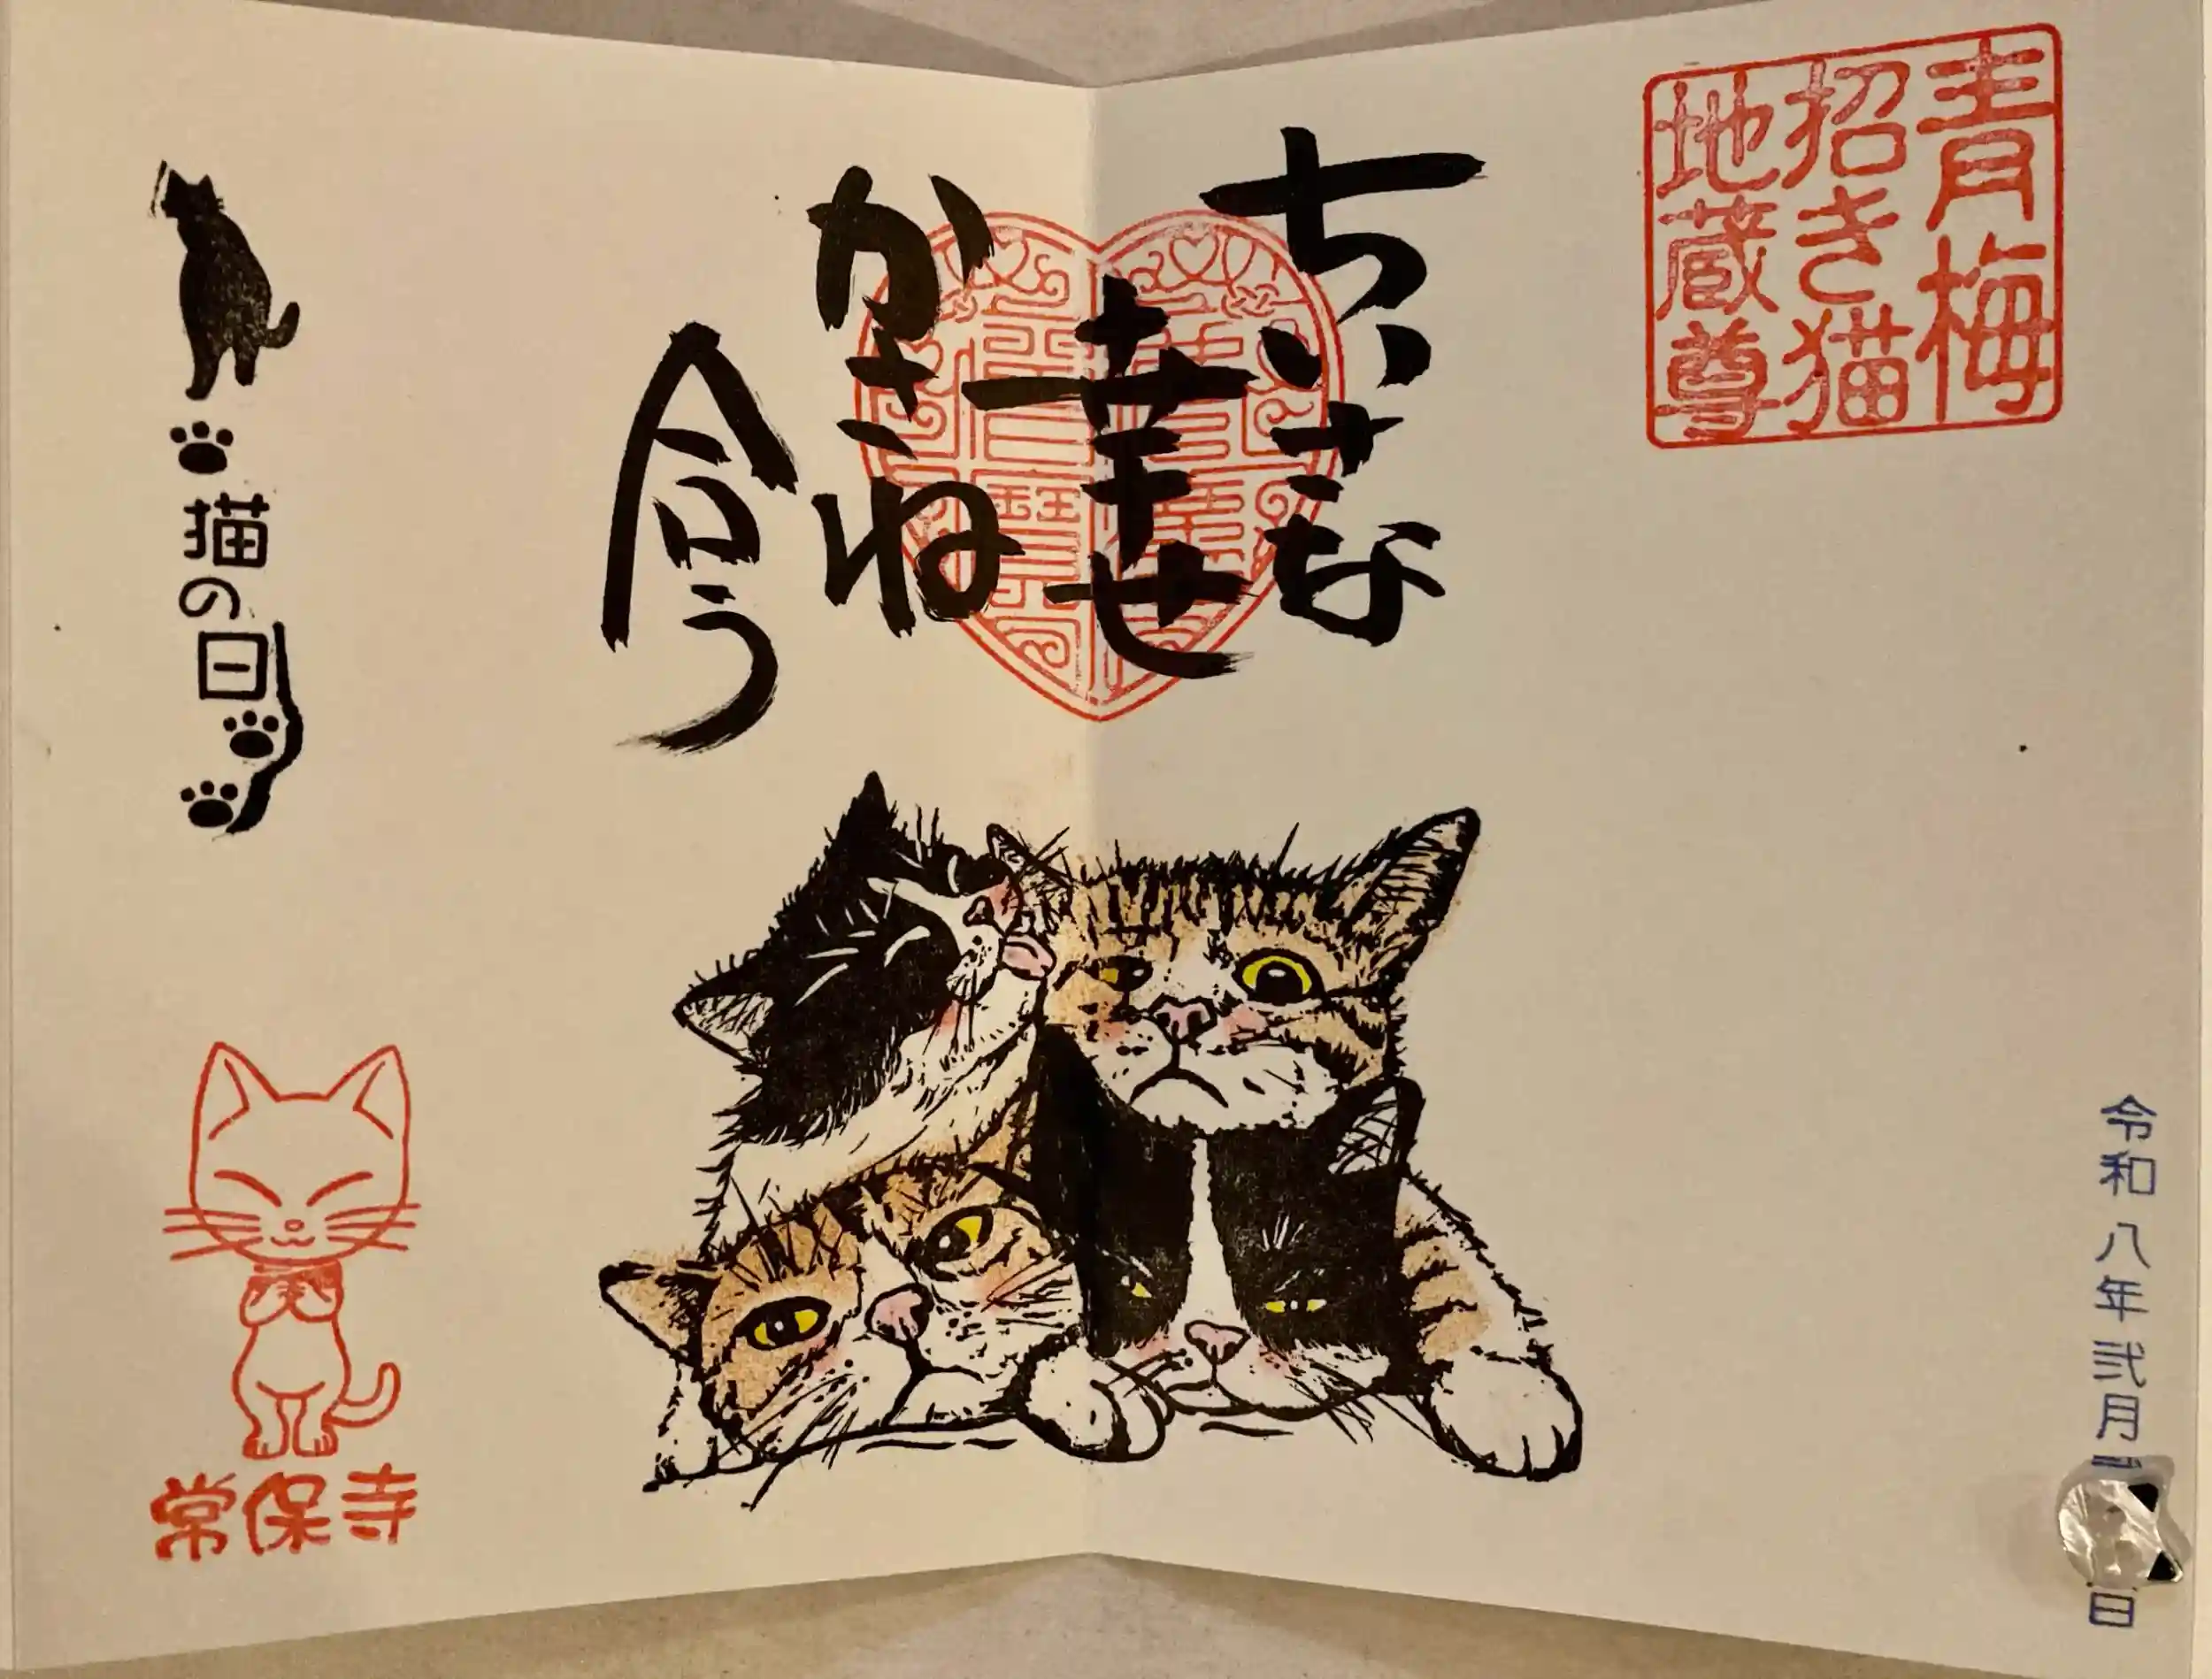 青梅
招き猫
地蔵尊
令和八年弐月
日
ちいさな
幸せ
かさね
合う
猫の日
常保寺